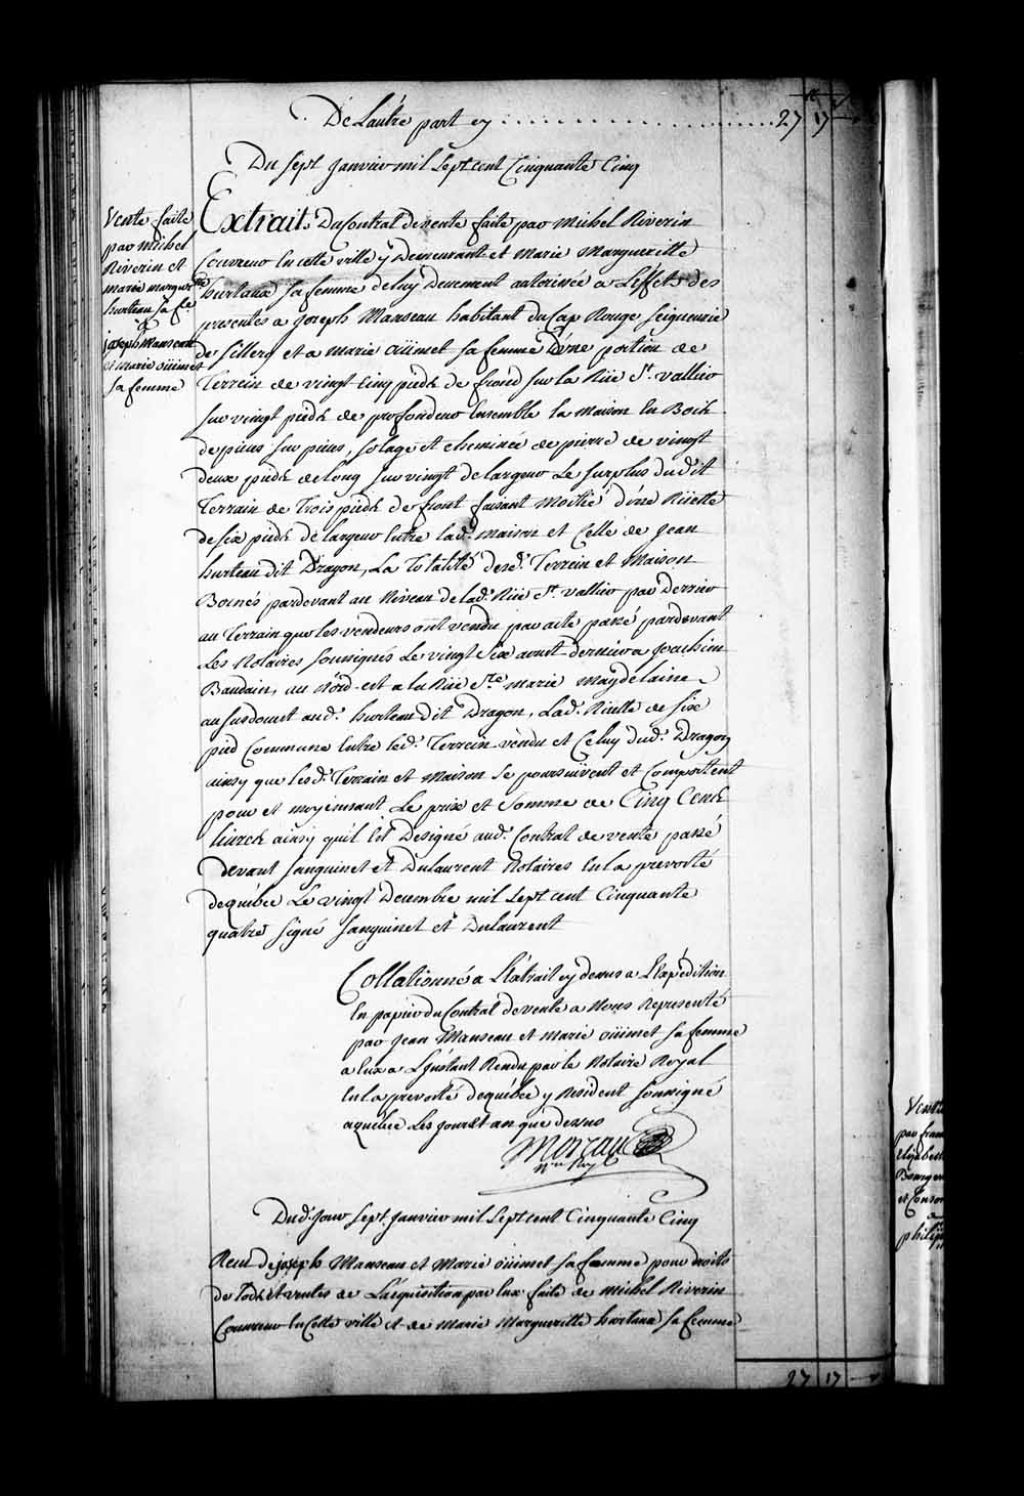 De Lautre part cy .......................... 27 17
Du sept Janvier mil Sept cent Cinquante Cinq
Vente faite
par michel
Riverin et
marie margueritte
hurteau sa fe.
a
joseph Manseau
et marie oüimet
sa femme
Extrait Du Contrat de vente faite par Michel Riverin
Couvreur en cette ville y Demeurant et Marie Margueritte
hurtaux sa femme de luy Deument autorisée a L'effet des
presentes a Joseph Manseau habitant du Cap Rouge Seigneurie
de Sillery et a Marie oüimet sa femme D'une portion de
Terrein de vingt Cinq pieds de frond sur la Rüe St. vallier
sur vingt pieds de profondeur Ensemble la Maison En Bois
de pieces sur pieces, solage et cheminée de pierre de vingt
deux pieds de Long sur vingt de largeur Le surplus du dit
Terrain de Trois pieds de front faisant Moitié d'une Rüelle
de six pieds de largeur Entre lad. Maison et Celle de Jean
hurteau dit Dragon, La Totalité desd. Terrein et Maison
Bornés pardevant au Niveau de lad. Rüe St. vallier par Derriere
au Terrain que les vendeurs ont vendu par acte passé pardevant
Les Notaires soussignés Le vingt Six aoust dernier a Joachim
Baudain, au Nord-est a la Rüe Ste. Marie Magdelaine
au Surdouest aud. hurteau dit Dragon, Lad. Ruelle de Six
pied Commune Entre led. Terrein vendu et Celuy dud. Dragon
ainsy que lesd. Terrain et Maison se poursuivent et Comportent
pour et moyennant Le prix et Somme de Cinq Cents
livres ainsy qu'il Est Designé aud. Contrat de vente passé
Devant Sanguinet et Dulaurent Notaires En la prevosté
de québec Le vingt Decembre mil Sept cent Cinquante
quatre signé Sanguinet et Dulaurent
Collationné a L'Extrait cy dessus a L'Expedition
En papier du Contrat de vente a Nous Representé
par Jean Manseau et Marie oüimet sa femme
a Eux a L'instant Rendu par le Notaire Royal
En la prevosté de québec y Resident soussigné
a québec Les jour et an que dessus
Moreau
Nre Roy
Dud. Jour Sept. Janvier mil Sept cent Cinquante Cinq
Receu de joseph Manseau et Marie oüimet sa femme pour droits
de Lods et ventes de L'acquisition par Eux faite de Michel Riverin
Couvreur En Cette ville et de Marie Margueritte hurtaux sa femme
27 17
Vente
par
Elizabeth
et
a